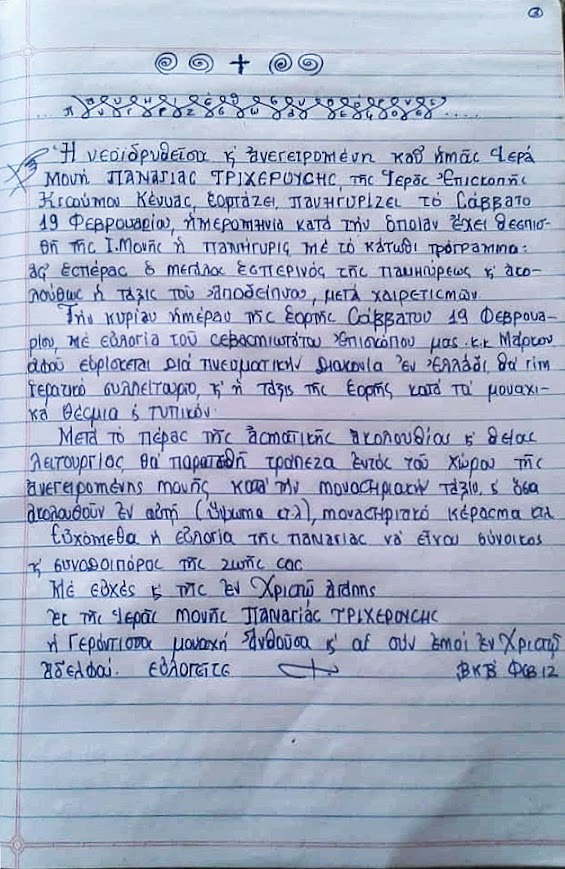 ②
Ἡ νεοϊδρυθεῖσα κ' ἀνεγειρομένη καθ' ἡμᾶς Ἱερά
Μονή ΠΑΝΑΓΙΑΣ ΤΡΙΧΕΡΟΥΣΗΣ, τῆς Ἱερᾶς Ἐπισκοπῆς
Κισσούμου Κένυας, ἑορτάζει, πανηγυρίζει τό Σάββατο
19 Φεβρουαρίου, ἡμερομηνία κατά τήν ὁποίαν ἔχει θεσπισ-
θῆ τῆς Ἰ.Μονῆς ἡ πανήγυρις μέ τό κάτωθι πρόγραμμα:
ἀφ' ἑσπέρας ὁ μεγάλος ἑσπερινός τῆς πανηγύρεως κ' ἀκο-
λούθως ἡ τάξις τοῦ Ἀποδείπνου, μετά χαιρετισμῶν.
Τήν κυρίαν ἡμέραν τῆς ἑορτῆς Σάββατον 19 Φεβρουα-
ρίου, μέ εὐλογία τοῦ σεβασμιωτάτου Ἐπισκόπου μας κ.κ Μάρκου
ἀφοῦ εὑρίσκεται διά πνευματικήν διακονία ἐν Ἑλλάδι, θά γίνη
ἱερατικό συλλείτουργο κ' ἡ τάξις τῆς ἑορτῆς κατά τά μοναχι-
κά θέσμια ϛ τυπικόν.
Μετά τό πέρας τῆς ἀσματικῆς ἀκολουθίας κ' θείας
λειτουργίας θά παρατεθῆ τράπεζα ἐντός τοῦ χώρου τῆς
ἀνεγειρομένης μονῆς κατά τήν μοναστηριακήν τάξιν ϛ ὅσα
ἀκολουθοῦν ἐν αὐτῆ (ὕψωμα κτλ), μοναστηριακό κέρασμα κτλ
Εὐχόμεθα ἡ εὐλογία τῆς Παναγίας νά εἶναι σύνοικος
κ' συνοδοιπόρος τῆς ζωῆς σας
Μέ εὐχές κ' τῆς ἐν Χριστῷ ἀγάπης
ἐκ τῆς Ἱερᾶς Μονῆς Παναγίας ΤΡΙΧΕΡΟΥΣΗΣ
ἡ Γερόντισσα μοναχή Ἀνθοῦσα κ' αἱ σύν ἐμοί ἐν Χριστῷ
ἀδελφαί. εὐλογεῖτε ΒΚΒ' Φεβ 12